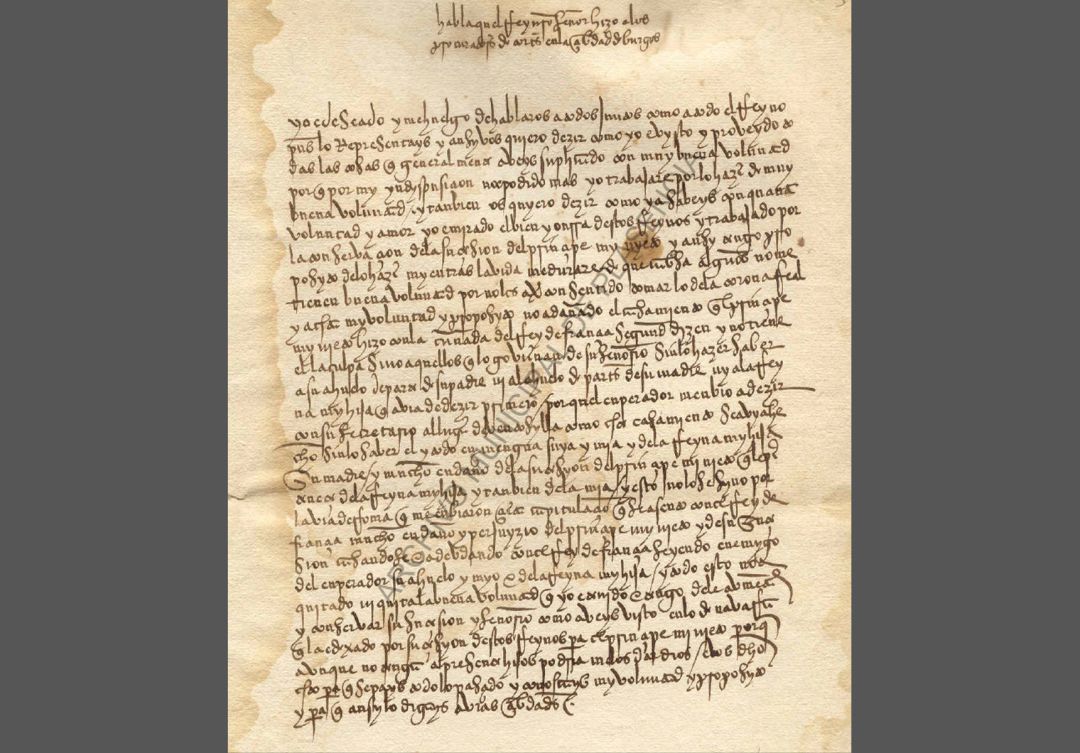 habla quel Rey nro señor hizo a los
procuradores de cortes en la cibdad de burgos
yo e deSeado y me huelgo de hablaros a todos juntos como a todo el Reyno
pues lo Representays y ansy vos quiero dezir como yo e vysto y proveydo to
das las cosas q generalmente abeys suplicado con muy buena voluntad
por q por my yndyspusicion no e podido mas yo trabajare por lo hazer de muy
buena voluntad / y tanbien os quyero dezir como ya sabeys con quanta
voluntad y amor yo e mirado el bien y onrra destos Reynos y trabajado por
la conservacion de la sucesion del prinçipe my nyeto y ansy tengo pro
posyto de lo hazer myentras la vida me durare / de que causa algunos no me
tienen buena voluntad por no les aver consentido tomar lo de la corona Real
y a esta my voluntad y proposyto no a dañado el casamiento q el prinçipe
my nieto hizo con la cuñada del Rey de françia segund dizen y no tiene
el la culpa sino aquellos q lo goviernan de su señorio sin lo hazer saber
a su ahuelo de parte de su padre ni al ahuelo de parte de su madre ny a la Rey
na my hija q avia de dezir primero / porque el enperador me enbio a dezir
con su secretario como este casamiento se avya he
cho sin lo saber el y todo en mengua suya y mia y de la Reyna my hija
su madre / y mucho en daño de la sucesyon del prinçipe mi nieto
de la Reyna my hija y tanbien de la mia / y esto no lo se syno por
la via de Roma q me enbiaron capitulado q se asento con el Rey de
françia mucho en daño y perjuyzio del prinçipe my nyeto y de su suce
sion casandose e adebdando con el Rey de françia seyendo enemygo
del enperador su ahuelo y myo e de la Reyna my hija / y todo esto no a
quitado ni quita la buena voluntad q yo e tenido e tengo de le aumentar
y conservar su sucesion y señorio como abeys visto en lo de nabarra
q la e dexado por sucesyon destos Reynos pa el prinçipe mi nieto porq
aunque no tengo al presente hijos podria me los dar dios / e os dicho
esto para q sepays todo lo pasado y conoscays my voluntad y proposyto
y para q ansy lo digays a vras cibdades
ARCHIVO MUNICIPAL DE PLASENCIA